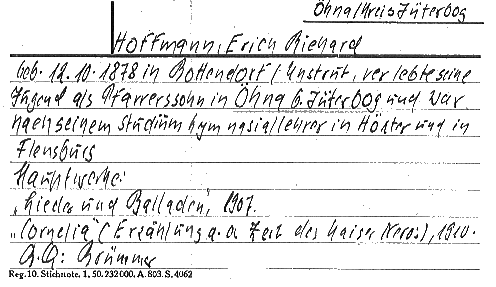 Öhna/Kreis Jüterbog
Hoffmann, Erich Richard
geb. 12.10.1878 in Bottendorf/Unstrut, verlebte seine
Jugend als Pfarrerssohn in Öhna b. Jüterbog und war
nach seinem Studium Gymnasiallehrer in Höxter und in
Flensburg
Hauptwerke:
"Lieder und Balladen", 1907.
"Cornelia" (Erzählung a. d. Zeit des Kaiser Neros), 1910.
Brümmer
Reg. 10. Stichnote. 1, 50. 232000. A. 803. S. 4062